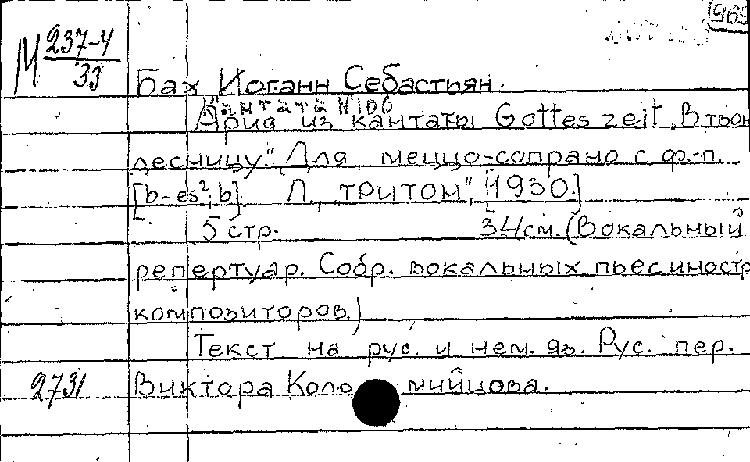 1965
М 237-4/33
Бах Иоганн Себастьян.
Кантата N 106
Ария из кантаты Gottes zeit „В твою
десницу". Для меццо-сопрано с ф.-п.
[b-es²; b]. Л. „ТРИТОН", [1930.]
5 стр. 34 см. (Вокальный
репертуар. Собр. вокальных пьес иностр
композиторов.)
Текст на рус. и нем. яз. Рус. пер.
2731 Виктора Коломийцова.